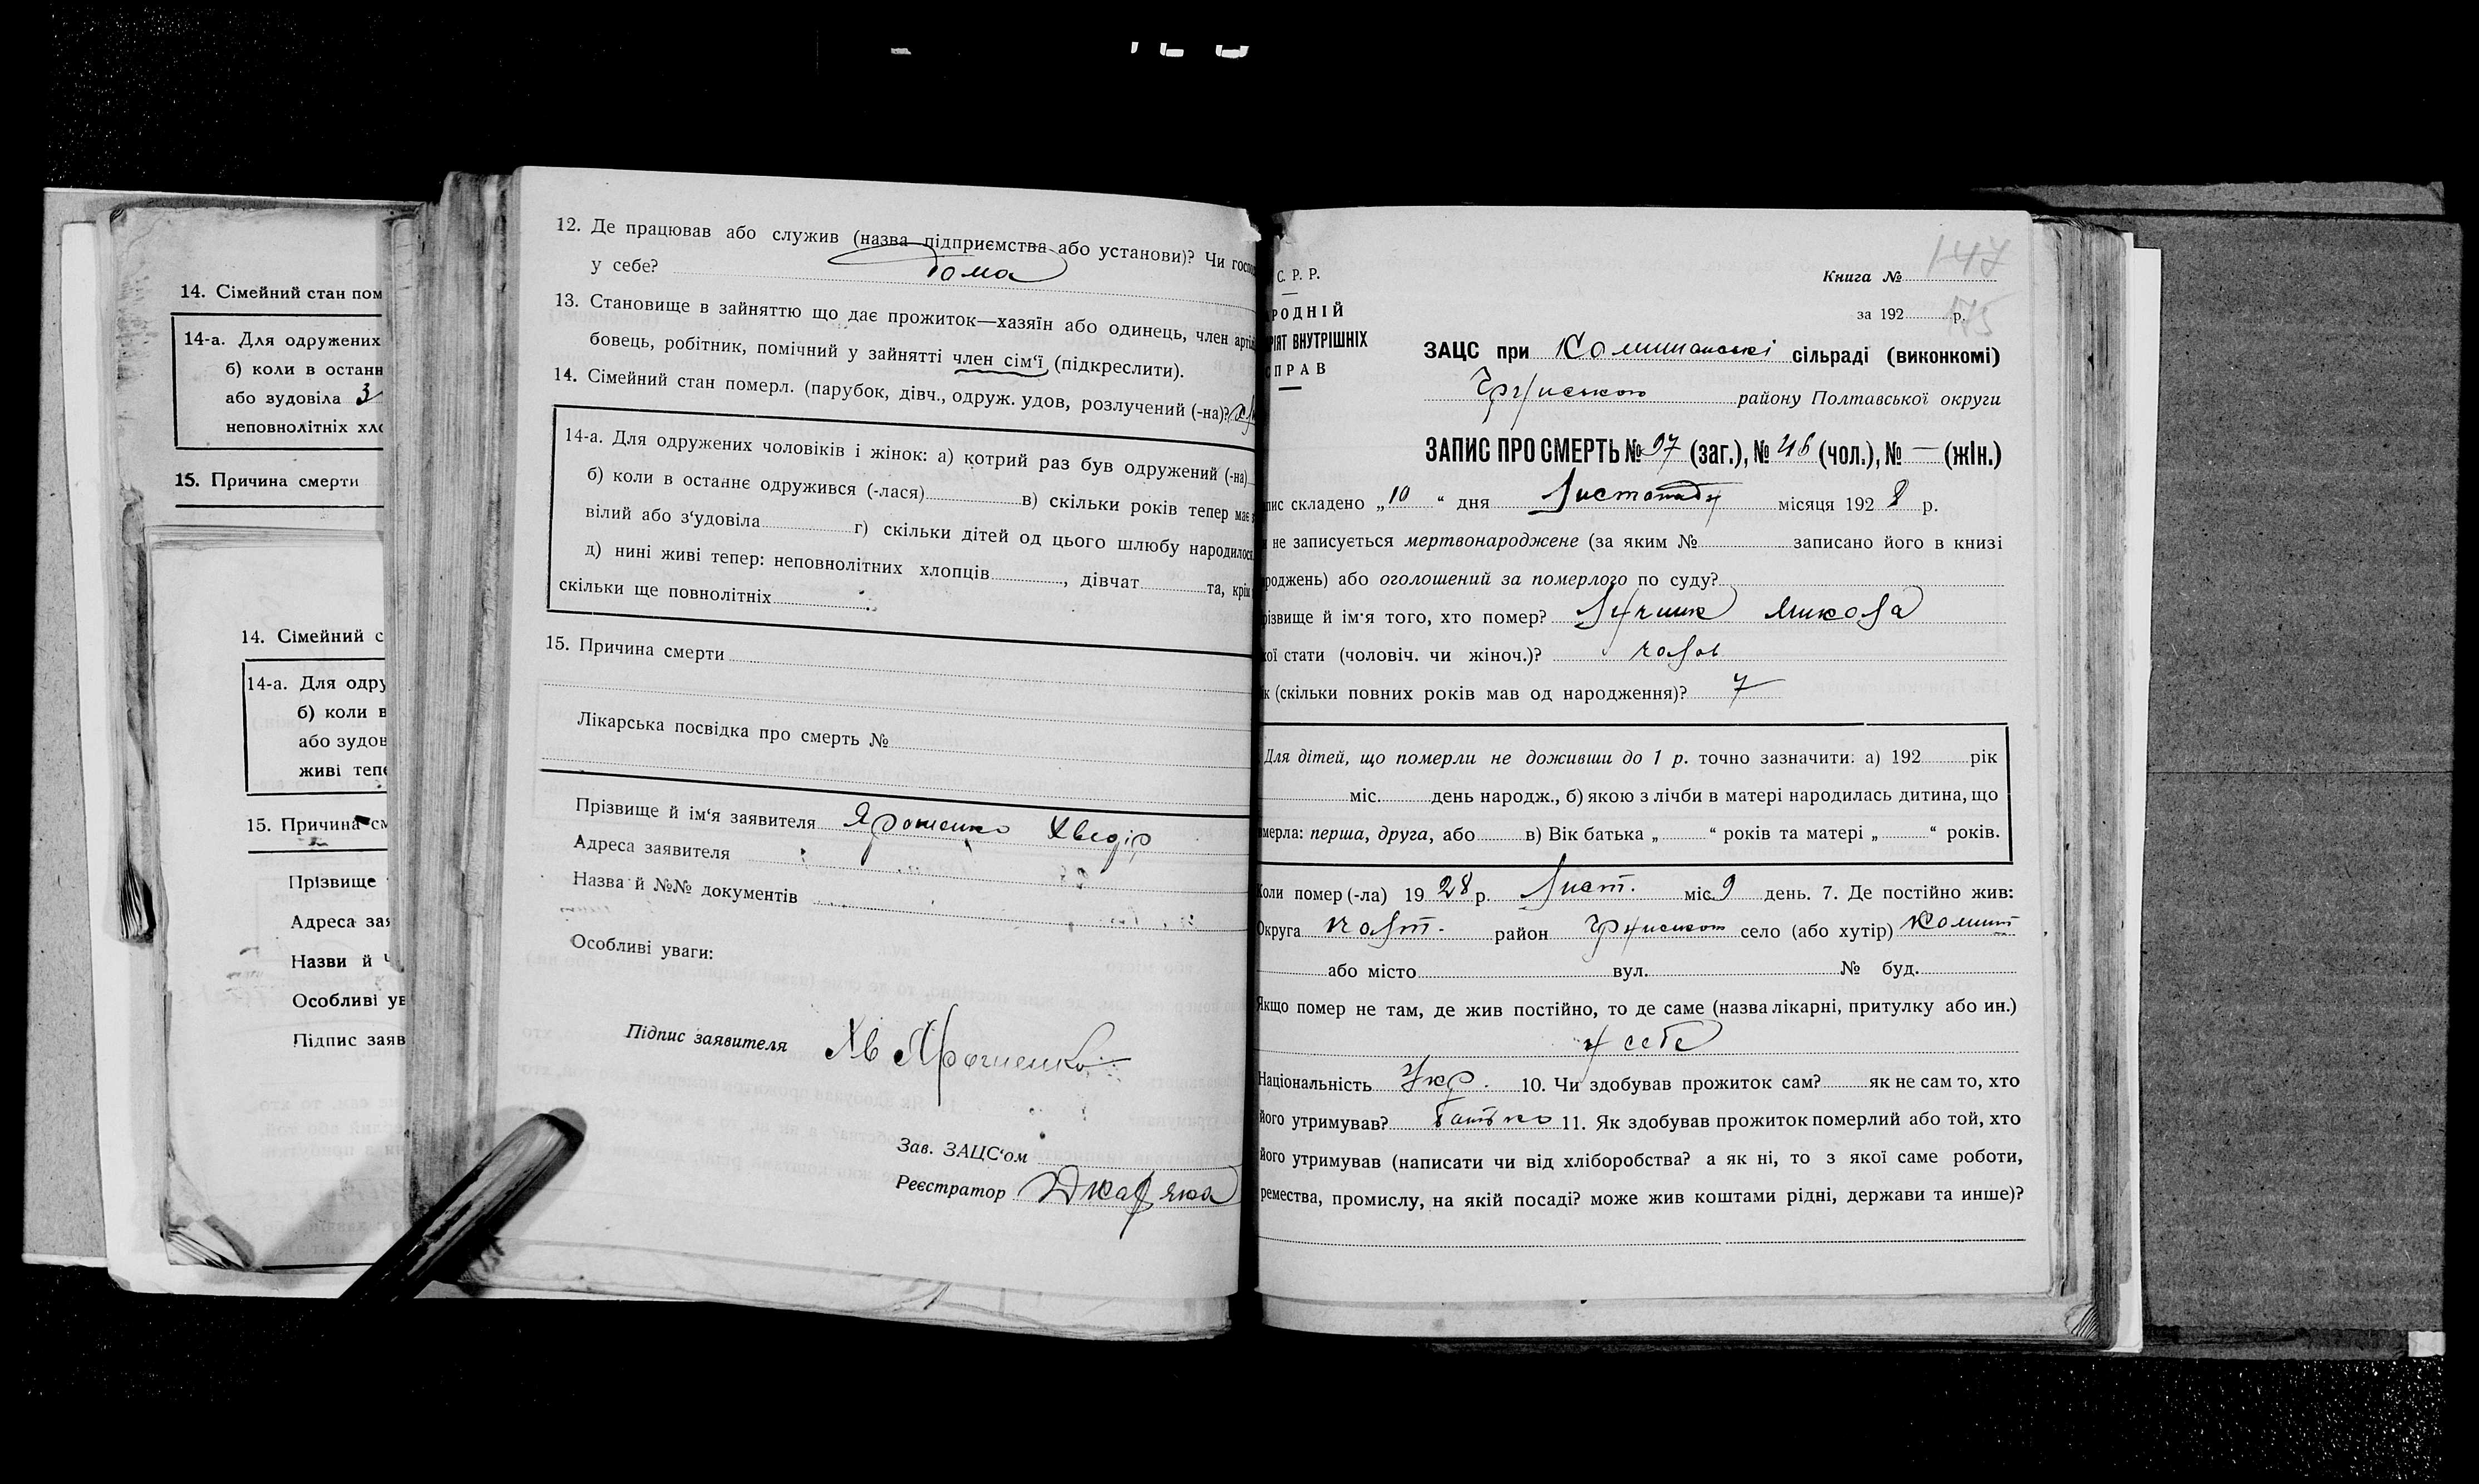 14. Сімейний стан пом
14-а. Для одружених
б) коли в останн
або зудовіла З
неповнолітніх хло
15. Причина смерти
14. Сімейний с
14-а. Для одру
б) коли в
або зудов
живі тепе
15. Причина см
Прізвище
Адреса зая
Назви й
Особливі ув
Підпис заяв
12. Де працював або служив (назва підприємства або установи)? Чи госпо
у себе? Дома
13. Становище в зайняттю що дає прожиток—хазяїн або одинець, член арті
бовець, робітник, помічний у зайнятті член сім'ї (підкреслити).
14. Сімейний стан померл. (парубок, дівч., одруж. удов, розлучений (-на)?
14-а. Для одружених чоловіків і жінок: а) котрий раз був одружений (-на)
б) коли в останнє одружився (-лася) в) скільки років тепер має
вілий або з'удовіла г) скільки дітей од цього шлюбу народилося
д) нині живі тепер: неповнолітних хлопців, дівчат та, крім
скільки ще повнолітніх
15. Причина смерти
Лікарська посвідка про смерть №
Прізвище й ім'я заявителя Ярошенко Хведір
Адреса заявителя
Назва й №№ документів
Особливі уваги:
Підпис заявителя Хв Ярошенко
Зав. ЗАЦС'ом
Реєстратор
147
С. Р. Р.
Книга №
175
РОДНІЙ
за 192 р.
РІЯТ ВНУТРІШНІХ
СПРАВ
ЗАЦС при Комишанські сільраді (виконкомі)
району Полтавської округи
ЗАПИС ПРО СМЕРТЬ № 97 (заг.), № 46 (чол.), № — (жін.)
пис складено „10" дня Листопаду місяця 1928 р.
не записується мертвонароджене (за яким № записано його в книзі
роджень) або оголошений за померлого по суду?
різвище й ім'я того, хто помер? Лучник Микола
кої стати (чоловіч. чи жіноч.)? чолов
к (скільки повних років мав од народження)? 7
Для дітей, що померли не доживши до 1 р. точно зазначити: а) 192 рік
міс. день народж., б) якою з лічби в матері народилась дитина, що
мерла: перша, друга, або в) Вік батька „ " років та матері „ " років.
Коли помер (-ла) 1928 р. Лист. міс. 9 день. 7. Де постійно жив:
Округа Полт. район село (або хутір) Комиш
або місто вул. № буд.
Якщо помер не там, де жив постійно, то де саме (назва лікарні, притулку або ин.)
у себе
Національність Укр. 10. Чи здобував прожиток сам? як не сам то, хто
його утримував? батько 11. Як здобував прожиток померлий або той, хто
його утримував (написати чи від хліборобства? а як ні, то з якої саме роботи,
ремества, промислу, на якій посаді? може жив коштами рідні, держави та инше)?